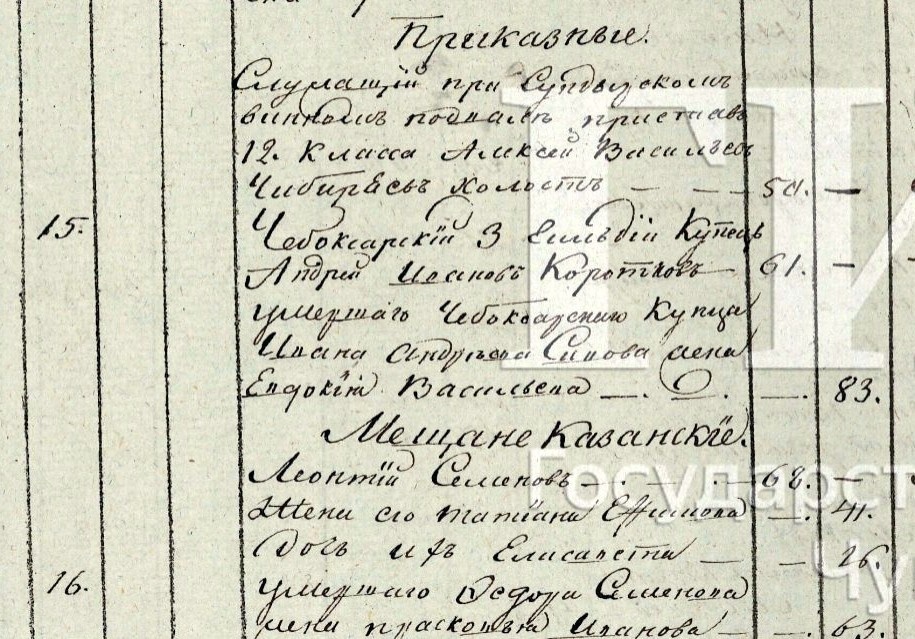 Приказные.
Служащій при Сундырскомъ
винномъ подвалѣ приставъ
12. класса Алексей Васильевъ
холостъ — — 51. —
15. Чебоксарскій 3 Гильдіи Купецъ
Андрей Ивановъ Коротковъ — 61. —
умершаго Чебоксарскаго Купца
Ивана Андрѣева жена
Евдокія Васильева — . — . — . 83.
Мещане Казанскіе.
Леонтій Семеновъ — . — . — 68. —
Жена его татіана Ефимова — . 41.
Дочь ихъ Елисавета — — . 26.
16. умершаго Ѳедора Семенова
жена прасковья Иванова — — . 63.
Государст
Чу